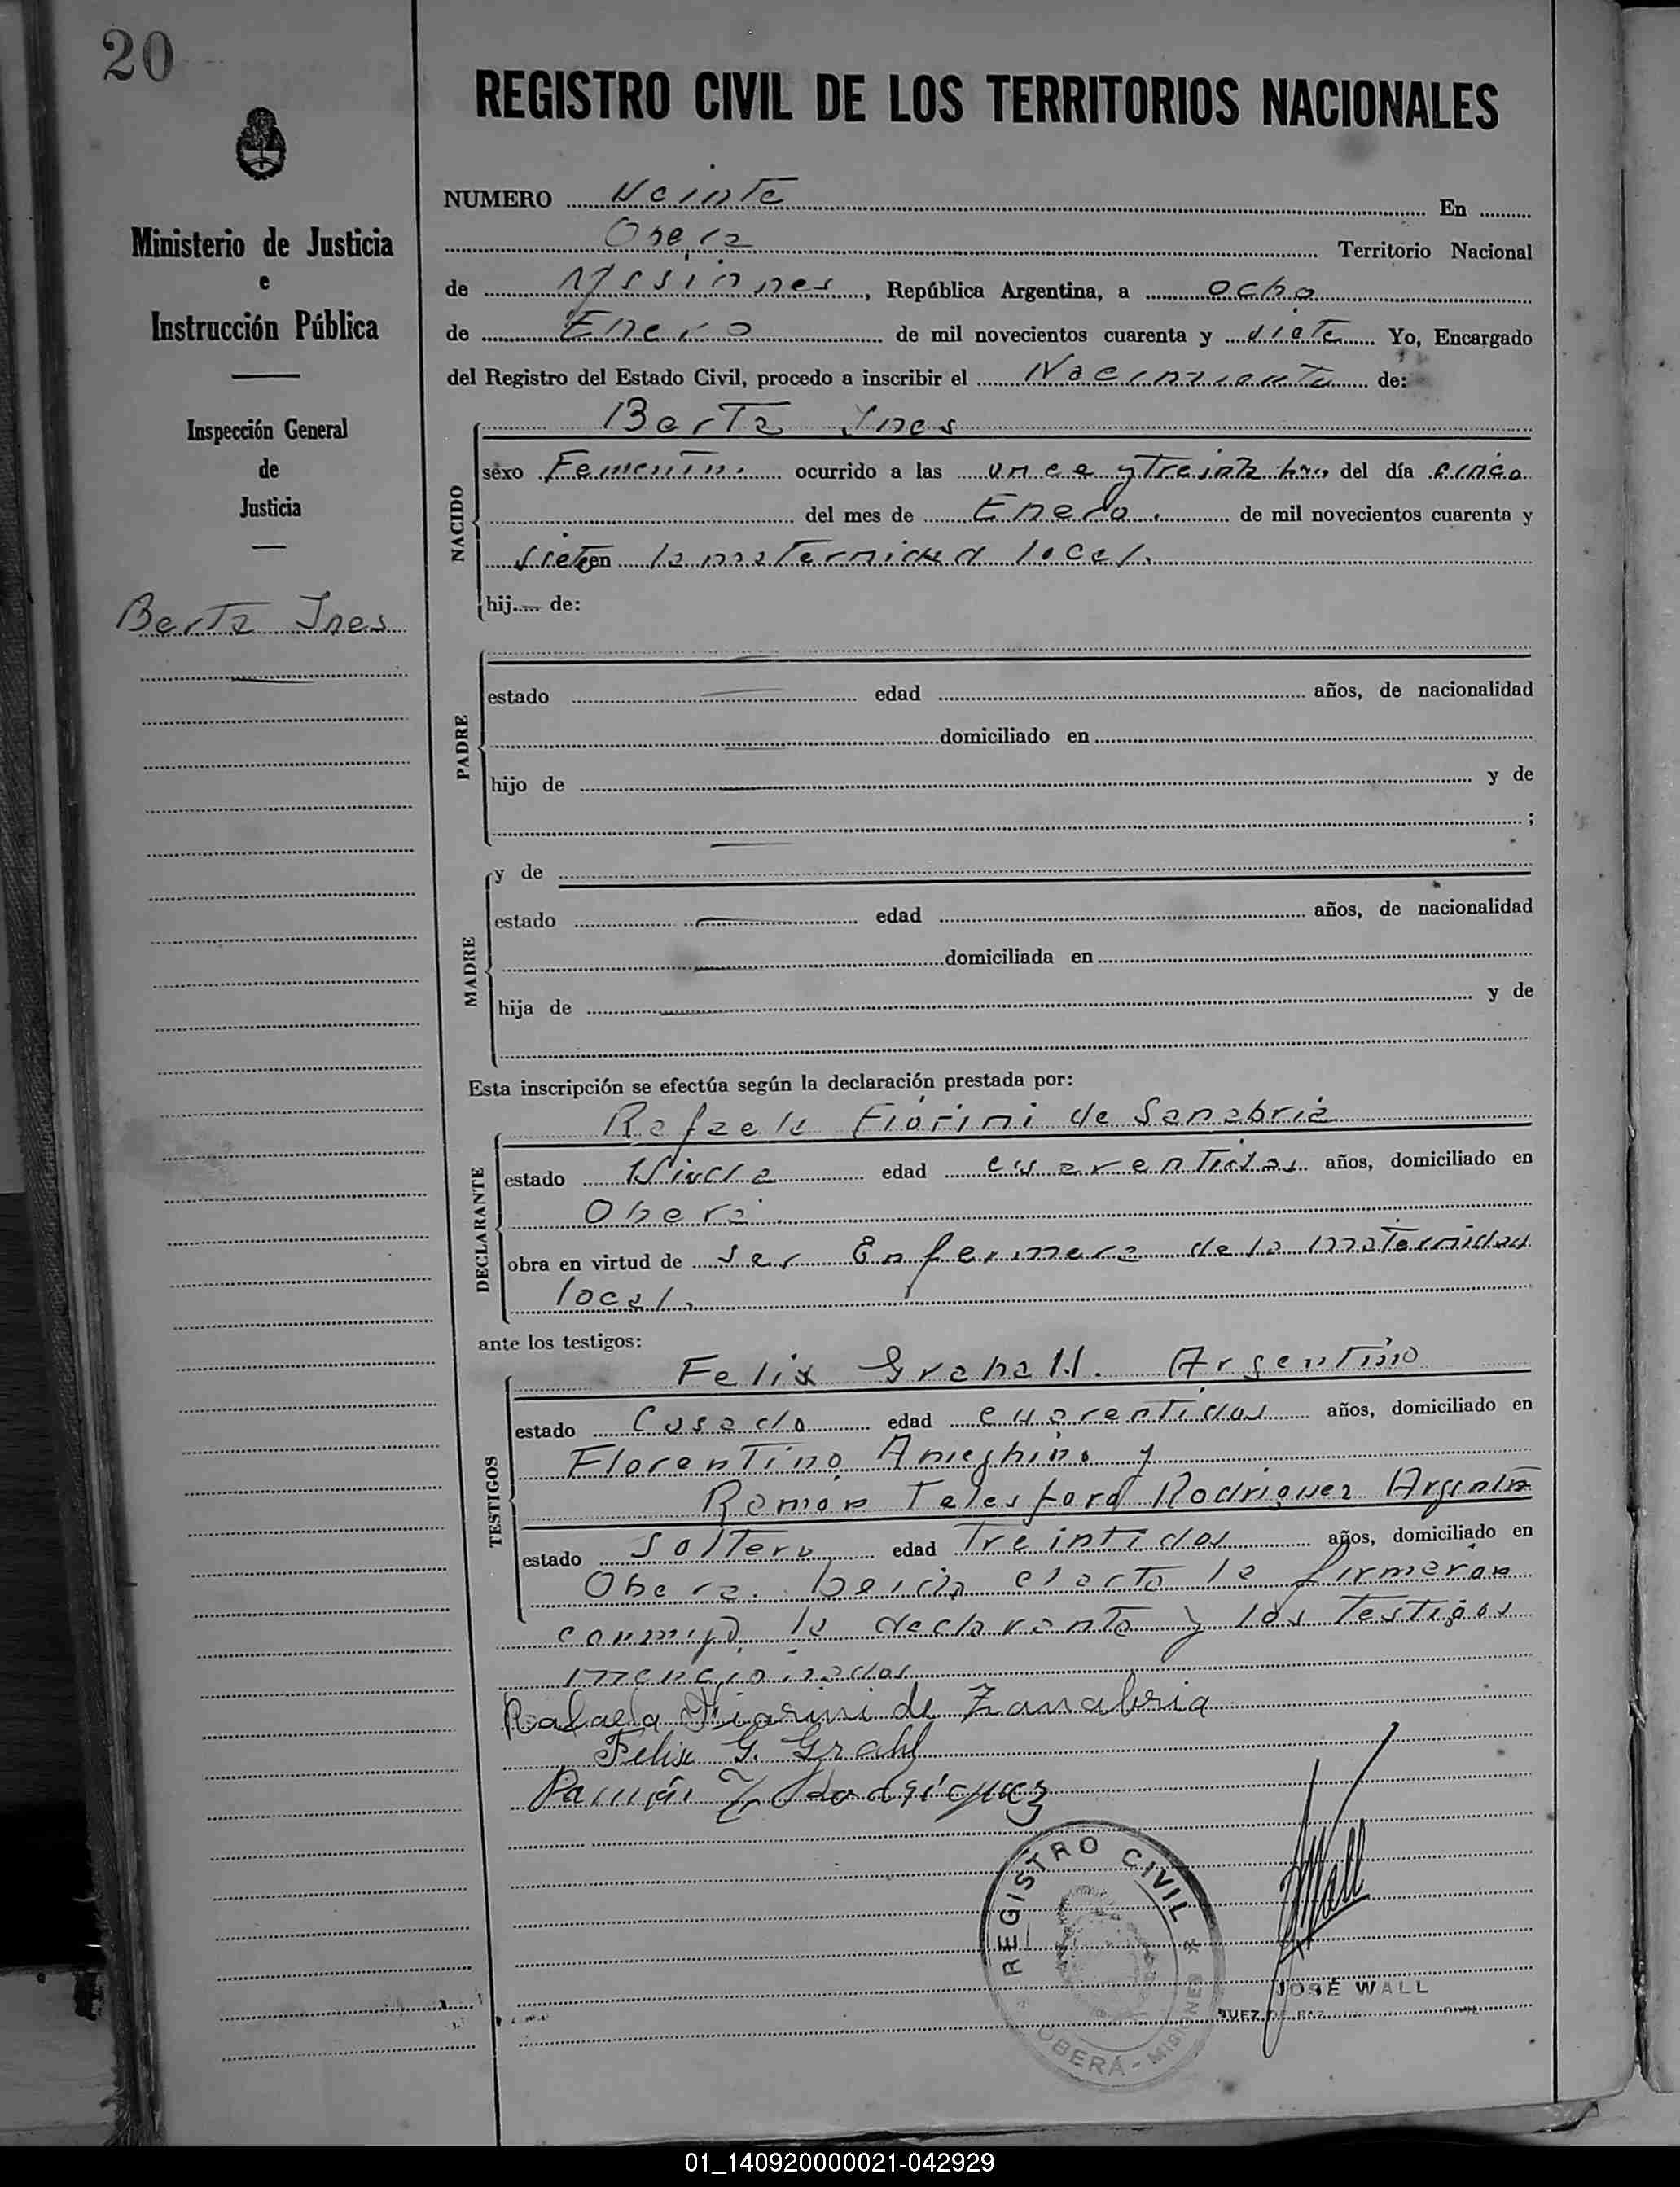 20
REGISTRO CIVIL DE LOS TERRITORIOS NACIONALES
Ministerio de Justicia
e
Instrucción Pública
Inspección General
de
Justicia
Berta Ines
NUMERO Veinte En
Obera Territorio Nacional
de Misiones, República Argentina, a ocho
de Enero de mil novecientos cuarenta y siete Yo, Encargado
del Registro del Estado Civil, procedo a inscribir el Nacimiento de:
NACIDO
Berta Ines
sexo Femenino ocurrido a las once y treinta hrs, del día cinco
del mes de Enero de mil novecientos cuarenta y
siete en la maternidad local.
hij de:
PADRE
estado edad años, de nacionalidad
domiciliado en
hijo de y de
;
MADRE
y de
estado edad años, de nacionalidad
domiciliada en
hija de y de
Esta inscripción se efectúa según la declaración prestada por:
DECLARANTE
Rafaela Fiorini de Sanabria
estado Viuda edad años, domiciliado en
Obera.
obra en virtud de ser Enfermera de la maternidad
local.
ante los testigos:
TESTIGOS
Felix Grahall. Argentino
estado Casado edad cuarentidos años, domiciliado en
Florentino Ameghino y
Ramón Telesford Rodriguez Argentin
estado Soltero edad treintidos años, domiciliado en
Obera. Leida el acta la firmarón
conmigo, la declarante y los testigos
mencionados
Rafaela Fiorini de Zanabria
Felix G. Grahl
Ramón T. Rodríguez
REGISTRO CIVIL
OBERÁ - MISIONES
JWall
JOSÉ WALL
JUEZ DE PAZ
01_140920000021-042929